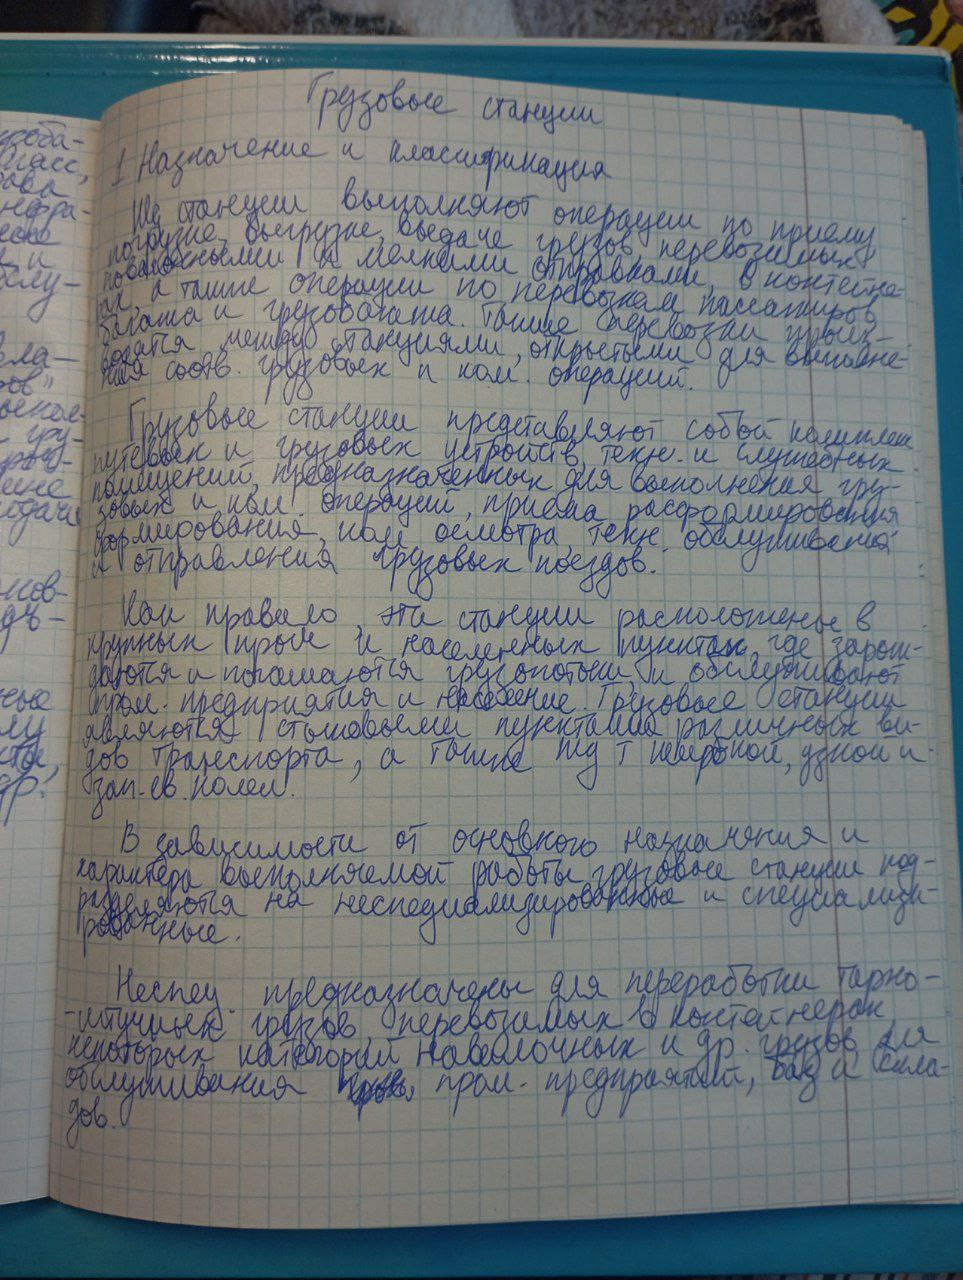 Грузовые станции
1 Назначение и классификация
Жд станции выполняют операции по приему
погрузке, выгрузке, выдаче грузов, перевозимых
повагонными и мелкими отправками, в контейне-
рах, а также операции по перевозкам пассажиров
багажа и грузобагажа. Такие перевозки произ-
водятся между станциями, открытыми для выполне-
ния соотв. грузовых и ком. операций.
Грузовые станции представляют собой комплекс
путевых и грузовых устройств, техн. и служебных
помещений, предназначенных для выполнения гру-
зовых и ком. операций, приема расформирования
формирования, ком осмотра техн. обслуживания
и отправления грузовых поездов.
Как правило, эти станции расположены в
крупных пром и населенных пунктах, где зарож-
даются и погашаются грузопотоки и обслуживают
пром. предприятия и население. Грузовые станции
являются стыковыми пунктами различных ви-
дов транспорта, а также жд широкой, узкой и
зап-ев. колеи.
В зависимости от основного назначения и
характера выполняемой работы грузовые станции под-
разделяются на неспециализированные и специализи-
рованные.
Неспец. предназначены для переработки тарно-
-штучных грузов, перевозимых в контейнерах
некоторых категорий навалочных и др. грузов для
обслуживания пром. предприятий, баз и скла-
дов.
зоба-
ласс,
рава
о и
ому-
вла-
ров"
гру-
идачи
нов-
дъ-
ные
му
др.